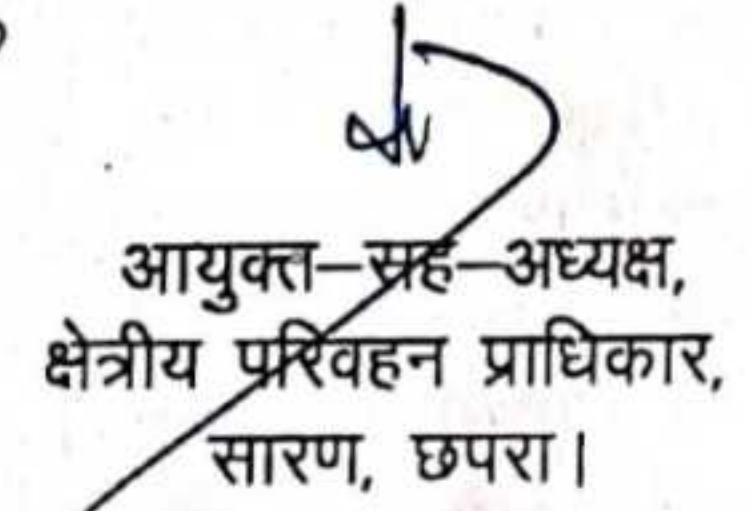 आयुक्त–सह–अध्यक्ष,
क्षेत्रीय परिवहन प्राधिकार,
सारण, छपरा।